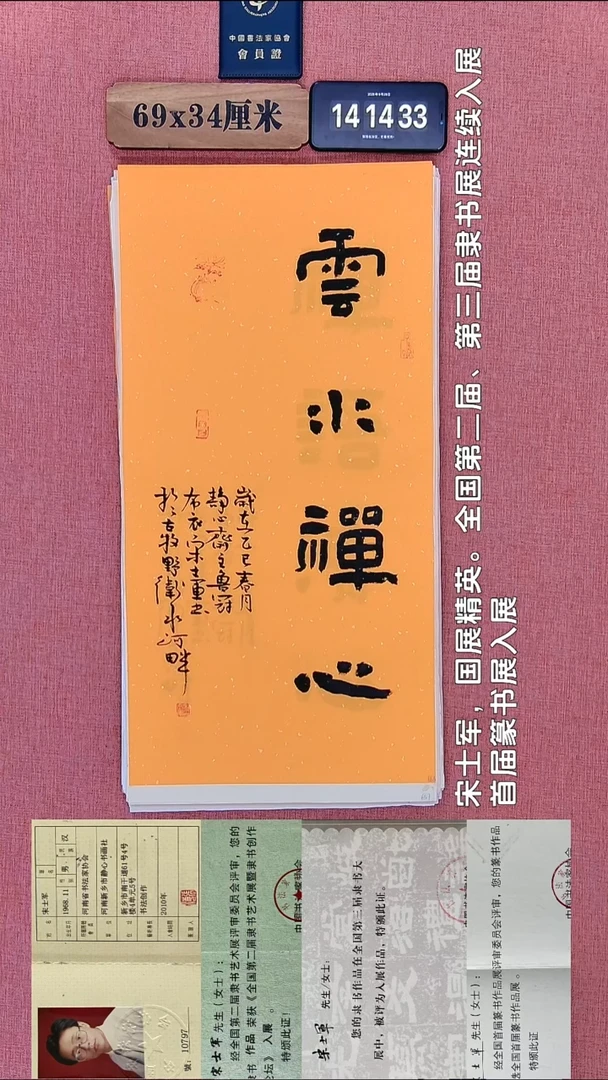 中國書法家協會
會員證
69x34厘米
14 14 33
雲水禪心
歲在乙巳春月
静心齋主魯冠
布衣宋士軍書
於古牧野衛水河畔
宋士军，国展精英。全国第二届、第三届隶书展连续入展
首届篆书展入展
宋士军
1968.11 男 汉
河南省书法家协会
河南新乡市静心书画社
新乡市南干道61号4号
楼4单元5号
书法创作
2010年
號：10797
宋士军 先生（女士）：
经全国第二届隶书艺术展评审委员会评审，您的
隶书 作品 荣获《全国第二届隶书艺术展暨隶书创作
论坛》 入展 。
特颁此证！
宋士军 先生/女士：
您的隶书作品在全国第三届隶书大
展中，被评为入展作品，特颁此证。
士军 先生（女士）：
经全国首届篆书作品展评审委员会评审，您的篆书作品
全国首届篆书作品展。
特颁此证